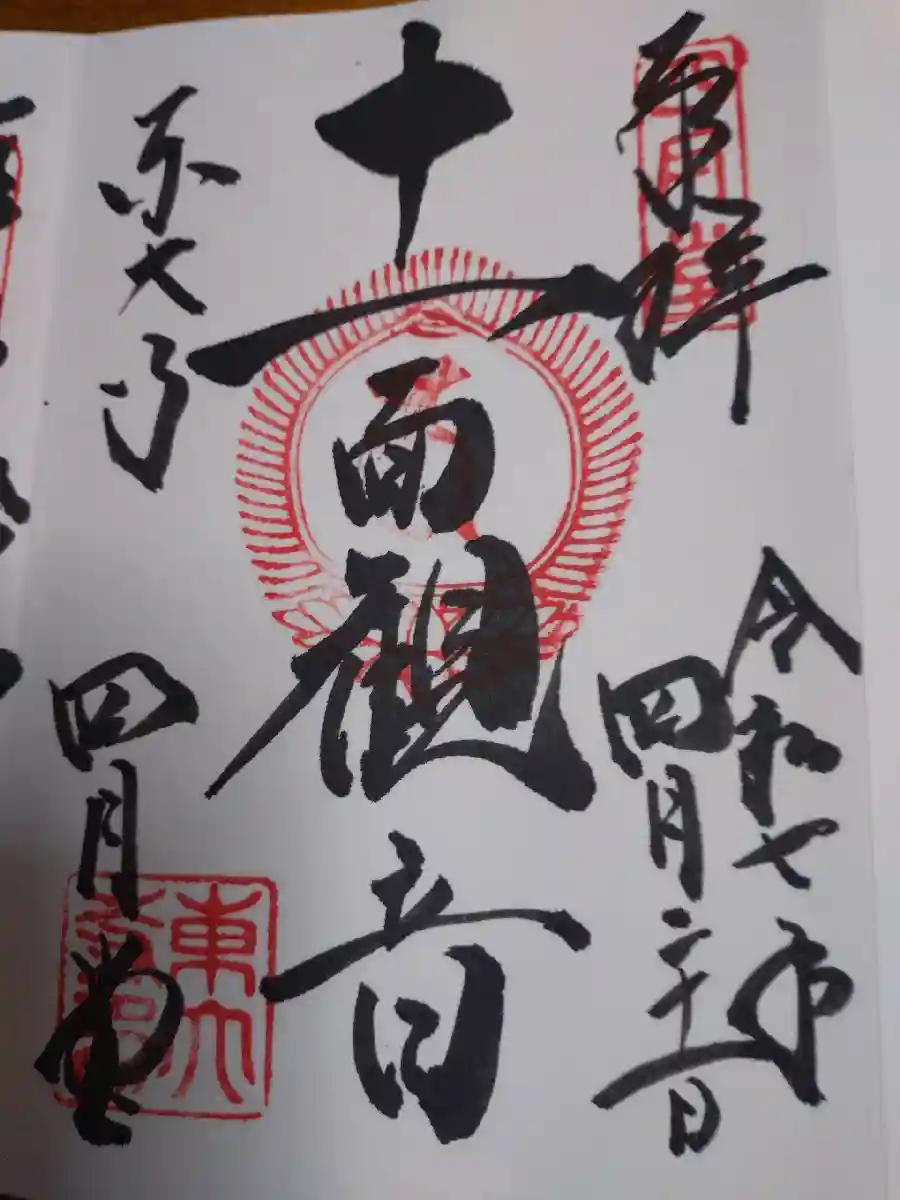 奉拝
四月堂
令和七年
四月二十一日
十一面観音
東大寺
四月堂
東大